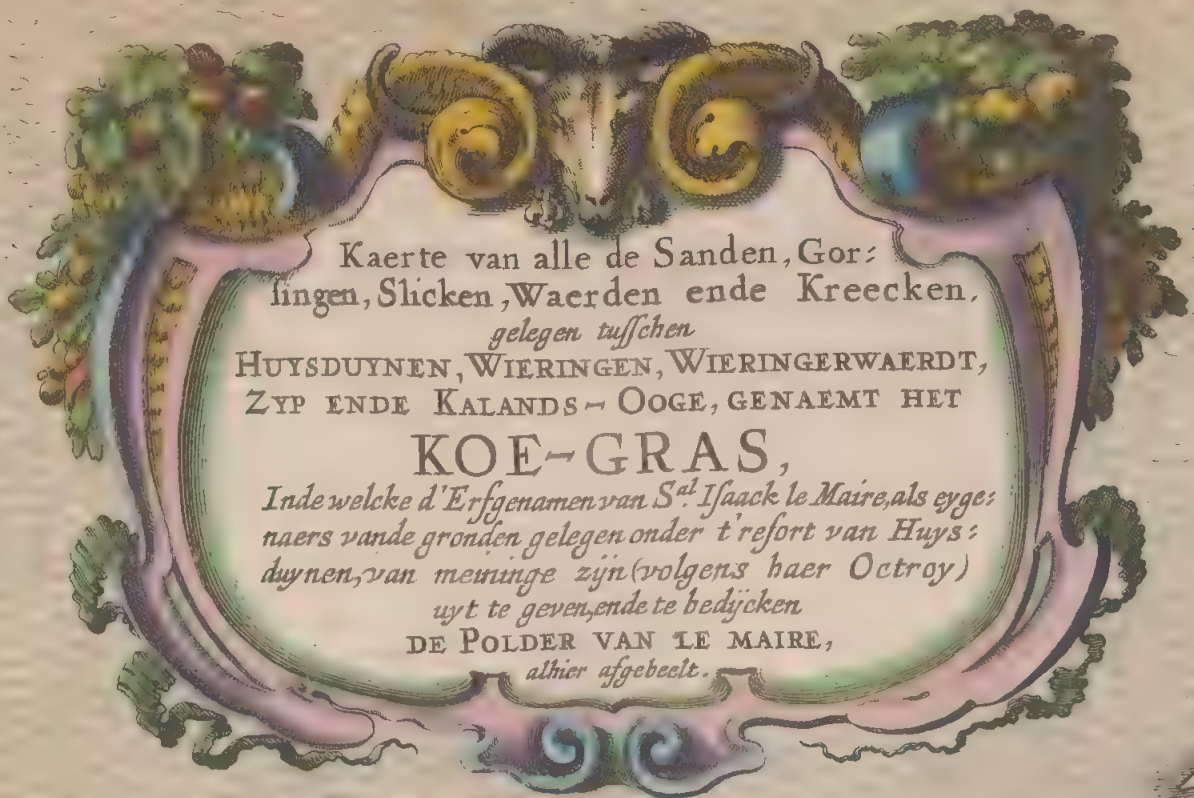 Kaerte van alle de Sanden, Gor:
singen, Slicken, Waerden ende Kreecken,
gelegen tusschen
HUYSDUYNEN, WIERINGEN, WIERINGERWAERDT,
ZYP ENDE KALANDS-OOGE, GENAEMT HET
KOE-GRAS,
Inde welcke d'Erfgenamen van Sal. Isaack le Maire, als eyge:
naers vande gronden gelegen onder t'resort van Huys:
duynen, van meininge zijn (volgens haer Octroy)
uyt te geven, ende te bedijcken
DE POLDER VAN LE MAIRE,
alhier afgebeelt.